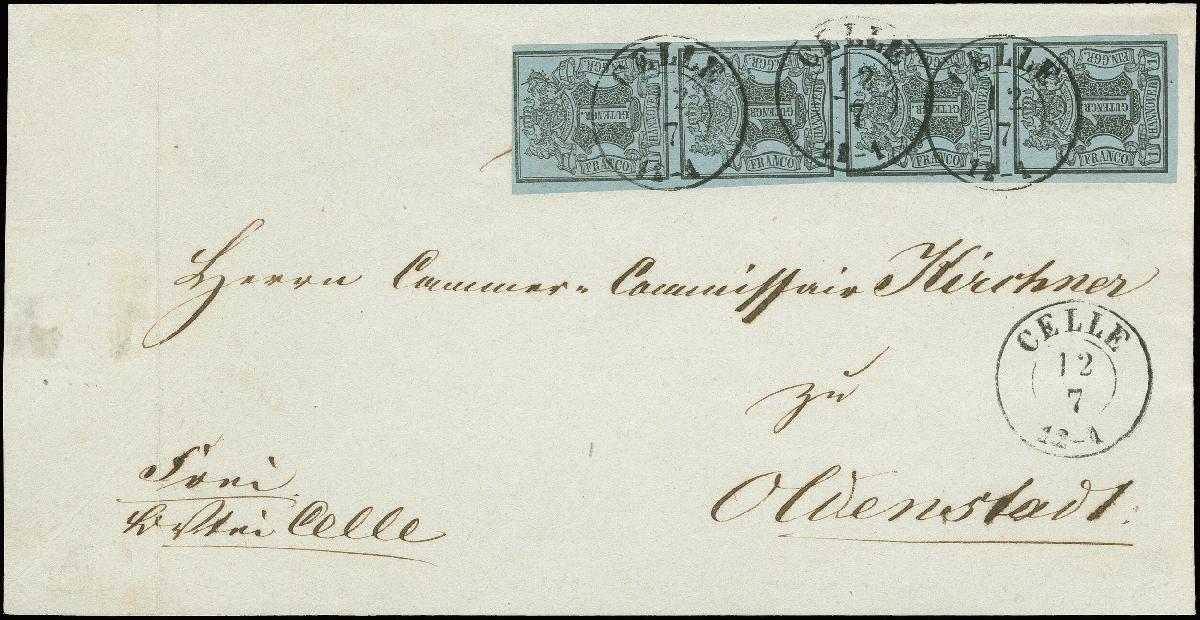 CELLE
12
7
12-1
CELLE
12
7
12-1
CELLE
12
7
12-1
EIN.GGR.
HANNOVER
1
GUTENGR.
FRANCO
EIN.GGR.
HANNOVER
1
GUTENGR.
FRANCO
EIN.GGR.
HANNOVER
1
GUTENGR.
FRANCO
EIN.GGR.
HANNOVER
1
GUTENGR.
FRANCO
Herrn Cammer-Commissair Kirchner
CELLE
12
7
12-1
zu
Frei
Oldenstadt.
Celle